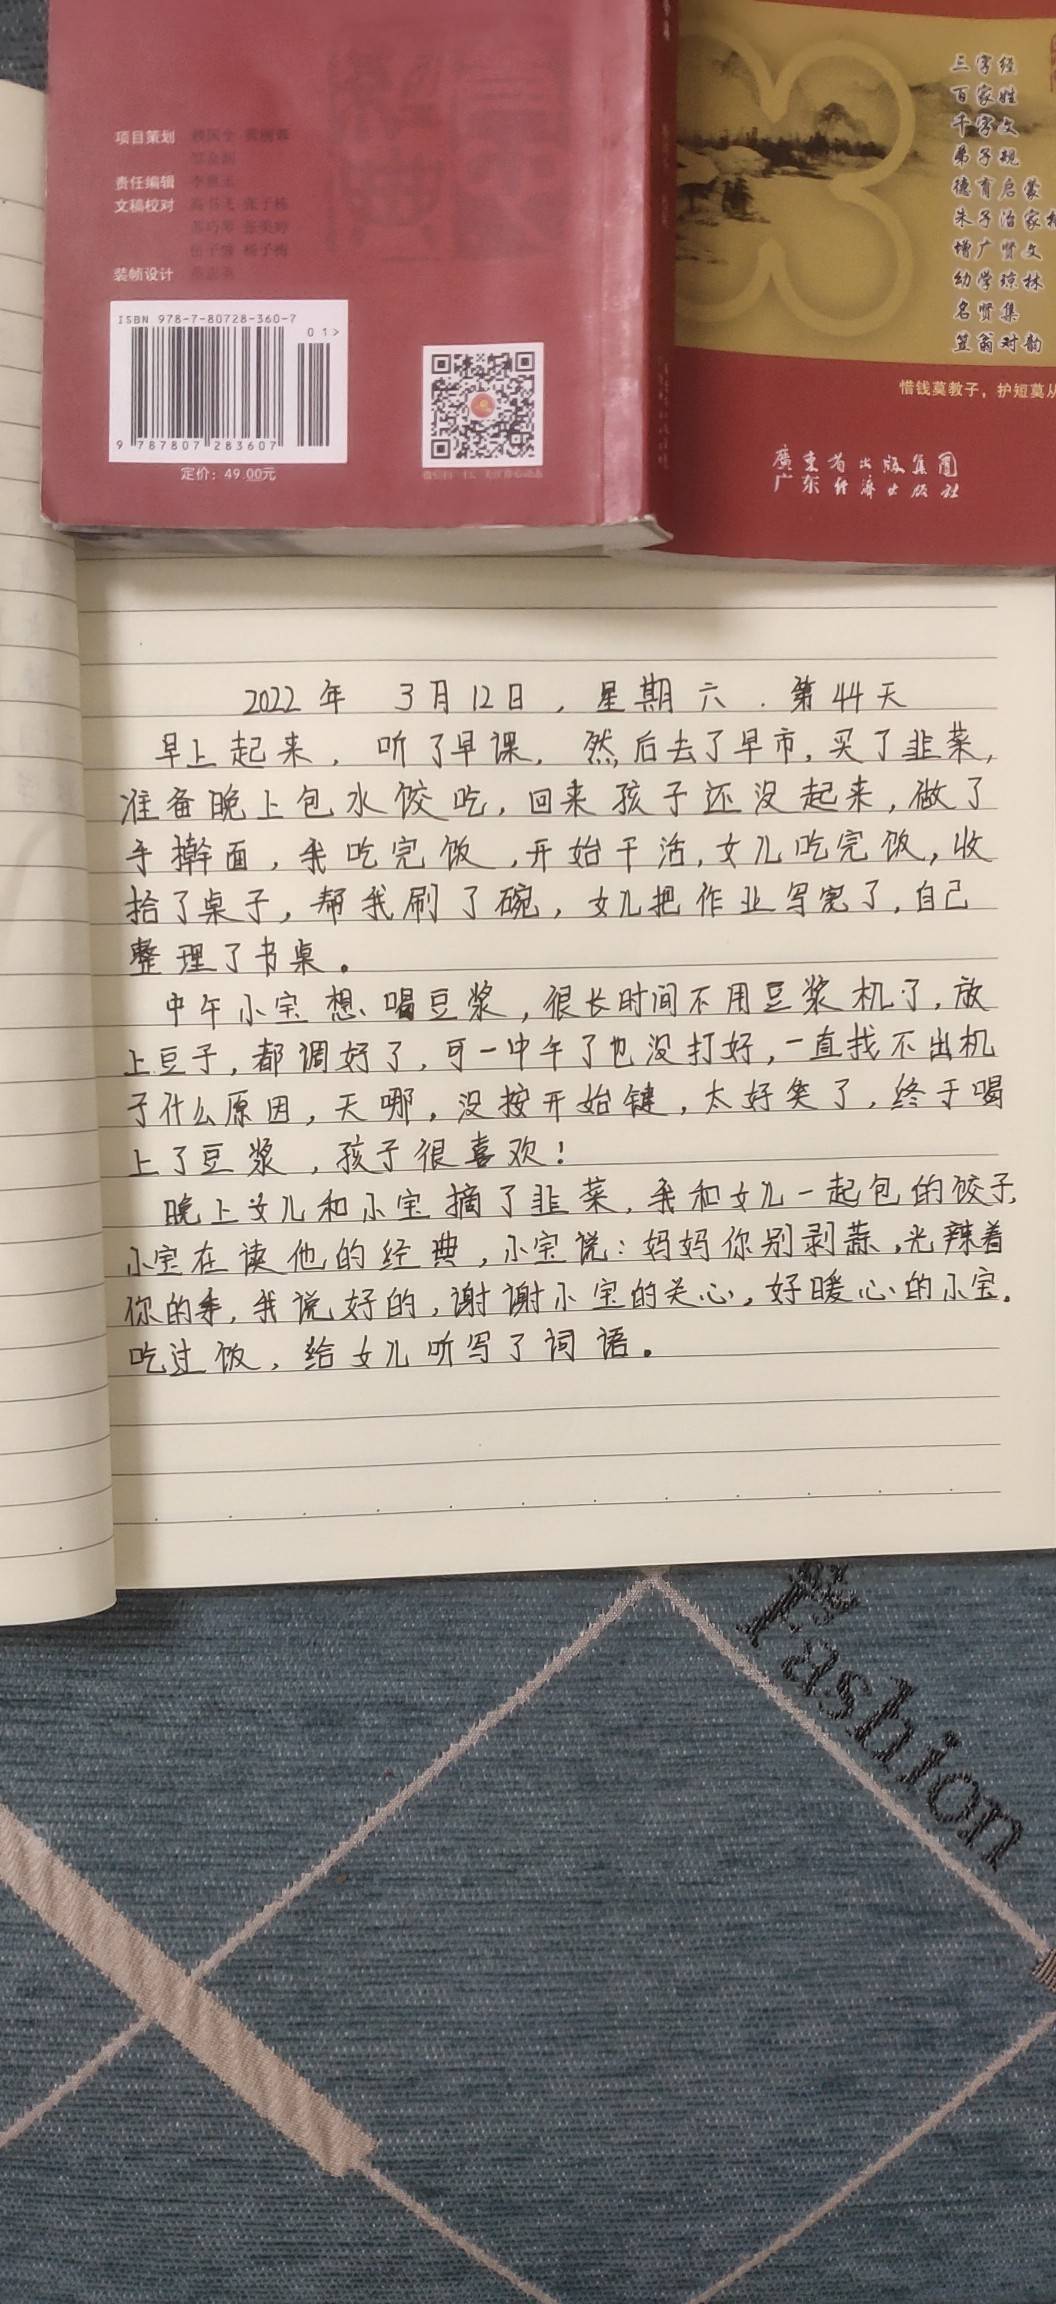 项目策划
责任编辑
文稿校对
装帧设计
ISBN 978-7-80728-360-7
01>
9 787807 283607
定价：49.00元
三字经
百家姓
千字文
弟子规
德育启蒙
朱子治家格
增广贤文
幼学琼林
名贤集
笠翁对韵
惜钱莫教子，护短莫从
廣东省出版集團
广东经济出版社
2022年 3月12日，星期六．第44天
早上起来，听了早课，然后去了早市，买了韭菜，
准备晚上包水饺吃，回来孩子还没起来，做了
手擀面，我吃完饭，开始干活，女儿吃完饭，收
拾了桌子，帮我刷了碗，女儿把作业写完了，自己
整理了书桌。
中午小宝想喝豆浆，很长时间不用豆浆机了，放
上豆子，都调好了，可一中午了也没打好，一直找不出机
子什么原因，天哪，没按开始键，太好笑了，终于喝
上了豆浆，孩子很喜欢！
晚上女儿和小宝摘了韭菜，我和女儿一起包的饺子，
小宝在读他的经典，小宝说：妈妈你别剥蒜，光辣着
你的手，我说好的，谢谢小宝的关心，好暖心的小宝．
吃过饭，给女儿听写了词语。
Fashion